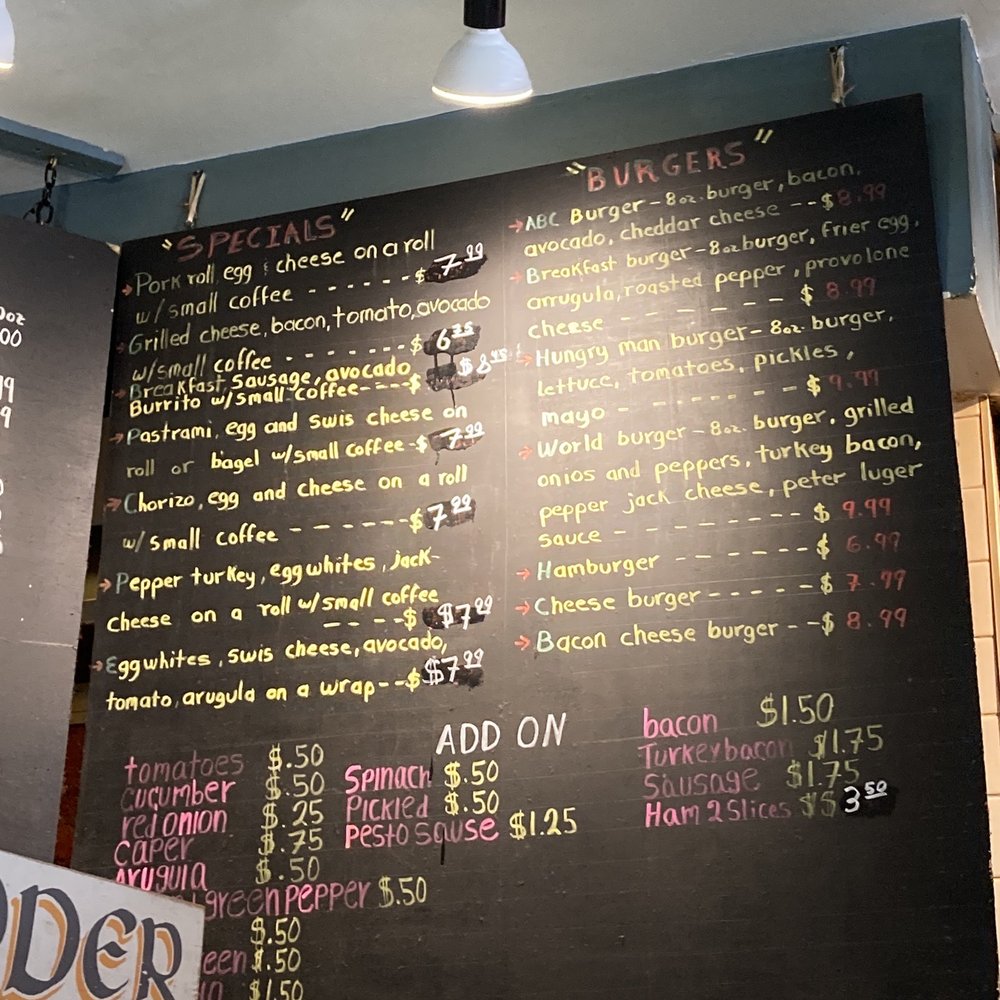 "SPECIALS"
Pork roll egg & cheese on a roll
w/ small coffee - - - - - - $ 7.99
Grilled cheese, bacon, tomato, avocado
w/small coffee - - - - - - - $ 6
Breakfast, Sausage, avocado
Burrito w/small coffee - - - - $
Pastrami, egg and swis cheese on
roll or bagel w/small coffee - $ 7.99
Chorizo, egg and cheese on a roll
w/ small coffee - - - - - - - $ 7.99
Pepper turkey, eggwhites, jack-
cheese on a roll w/small coffee
- - - - $ $7.99
Eggwhites, swis cheese, avocado,
tomato, arugula on a wrap - - $ $7.99
"BURGERS"
ABC Burger - 8oz. burger, bacon,
avocado, cheddar cheese - - $ 8.99
Breakfast burger - 8oz burger, frier egg,
arrugula, roasted pepper, provolone
cheese - - - - - - $ 8.99
Hungry man burger - 8oz. burger,
lettuce, tomatoes, pickles,
mayo - - - - - - - $ 9.99
World burger - 8oz. burger, grilled
onios and peppers, turkey bacon,
pepper jack cheese, peter luger
sauce - - - - - - - - $ 9.99
Hamburger - - - - - - - $ 6.99
Cheese burger - - - - - $ 7.99
Bacon cheese burger - - $ 8.99
ADD ON
tomatoes $.50
cucumber $.50
red onion $.25
caper $.75
Arugula $.50
green pepper $.50
$.50
een $.50
$1.50
Spinach $.50
Pickled $.50
Pesto sause $1.25
bacon $1.50
Turkey bacon $1.75
Sausage $1.75
Ham 2 Slices $$3.50
DER